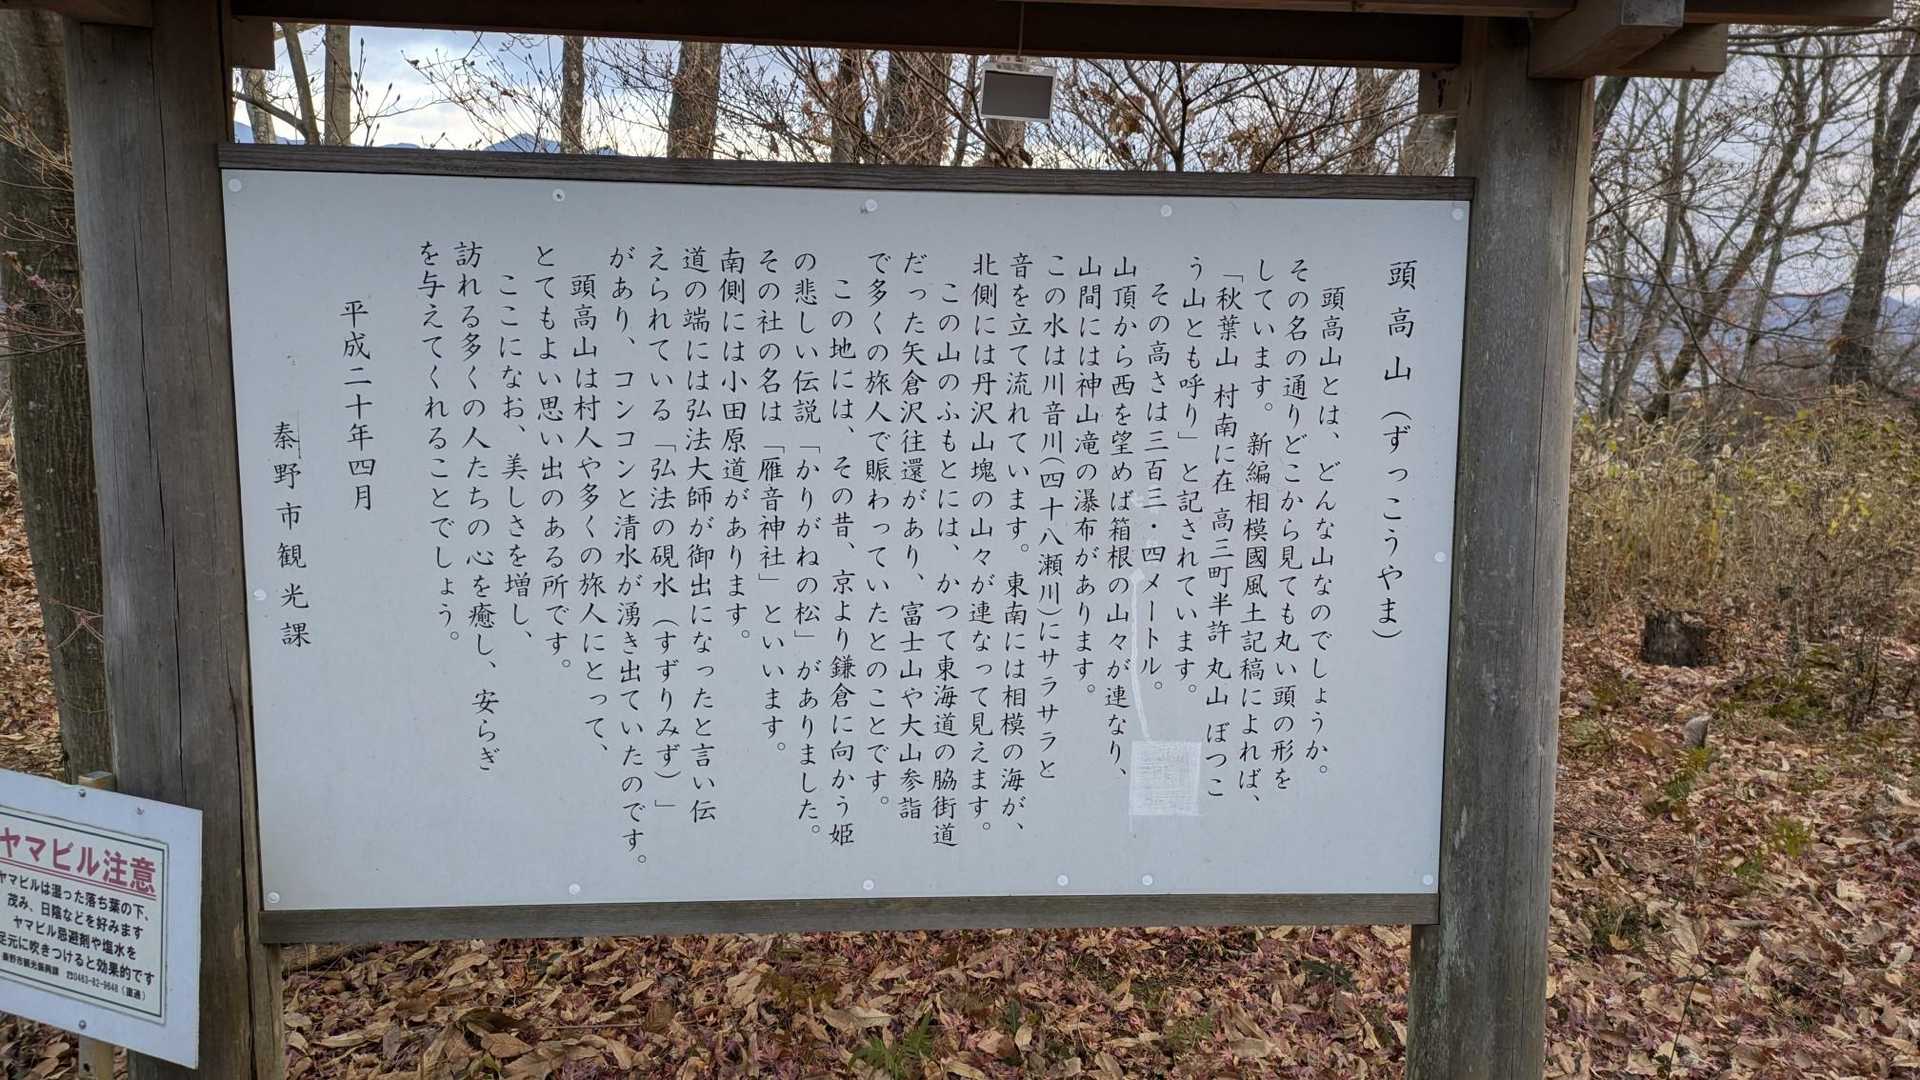 頭高山（ずっこうやま）
頭高山とは、どんな山なのでしょうか。
その名の通りどこから見ても丸い頭の形を
しています。新編相模國風土記稿によれば、
「秋葉山 村南に在 高三町半許 丸山 ぼつこ
う山とも呼り」と記されています。
その高さは三百三・四メートル。
山頂から西を望めば箱根の山々が連なり、
山間には神山滝の瀑布があります。
この水は川音川（四十八瀬川）にサラサラと
音を立て流れています。東南には相模の海が、
北側には丹沢山塊の山々が連なって見えます。
この山のふもとには、かつて東海道の脇街道
だった矢倉沢往還があり、富士山や大山参詣
で多くの旅人で賑わっていたとのことです。
この地には、その昔、京より鎌倉に向かう姫
の悲しい伝説「かりがねの松」がありました。
その社の名は「雁音神社」といいます。
南側には小田原道があります。
道の端には弘法大師が御出になったと言い伝
えられている「弘法の硯水（すずりみず）」
があり、コンコンと清水が湧き出ていたのです。
頭高山は村人や多くの旅人にとって、
とてもよい思い出のある所です。
ここになお、美しさを増し、
訪れる多くの人たちの心を癒し、安らぎ
を与えてくれることでしょう。
平成二十年四月
秦野市観光課
ヤマビル注意
ヤマビルは湿った落ち葉の下、
茂み、日陰などを好みます
ヤマビル忌避剤や塩水を
足元に吹きつけると効果的です
秦野市観光振興課 ☎0463-82-9648（直通）